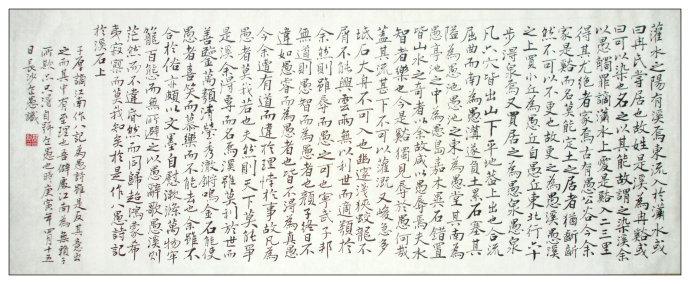 灌水之陽有溪焉東流入於瀟水或
曰冉氏嘗居也故姓是溪為冉谿或
曰可以染也名之以其能故謂之染溪余
以愚觸罪謫瀟水上愛是谿入二三里
得其尤絕者家焉古有愚公谷今余
家是谿而名莫能定土之居者猶齗齗
然不可以不更也故更之為愚溪愚溪
之上買小丘為愚丘自愚丘東北行六十
步得泉焉又買居之為愚泉愚泉
凡六穴皆出山下平地蓋上出也合流
屈曲而南為愚溝遂負土累石塞其
隘為愚池愚池之東為愚堂其南為
愚亭池之中為愚島嘉木異石錯置
皆山水之奇者以余故咸以愚辱焉夫水
智者樂也今是谿獨見辱於愚何哉
蓋其流甚下不可以灌溉又峻急多
坻石大舟不可入也幽邃淺狹蛟龍不
屑不能興雲雨無以利世而適類於
余然則雖辱而愚之可也甯武子邦
無道則愚智而為愚者也顏子終日不
違如愚睿而為愚者也皆不得為真愚
今余遭有道而違於理悖於事故凡為
愚者莫我若也夫然則天下莫能爭
是溪余得專而名焉溪雖莫利於世而
善鑒萬類清瑩秀澈鏘鳴金石能使
愚者喜笑而慕樂而不能去也余雖不
合於俗亦頗以文墨自慰漱滌萬物牢
籠百態而無所避之以愚辭歌愚溪則
茫然而不違昏然而同歸超鴻蒙希
夷寂寥而莫我知矣於是作八愚詩記
於溪石上
子厚謫江南作八記為愚詩雖是反其意出
之而其中有至理也吾僻處江南為無
只得自號左愚也時庚寅年四月十五
日長沙左愚識